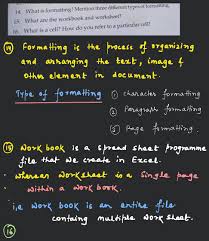 14. What is formatting? Mention three different types of formatting.
15. What are the workbook and worksheet?
16. What is a cell? How do you refer to a particular cell?
14 Formatting is the process of organizing
and arranging the text, image &
other element in document.
Type of formatting
① character formatting
② Paragraph formatting
③ Page formatting.
15 Work book is a spread sheet programme
file that we create in Excel.
whereas Worksheet is a single page
within a work book.
i,e Work book is an entire file
containg multiple work sheet.
16